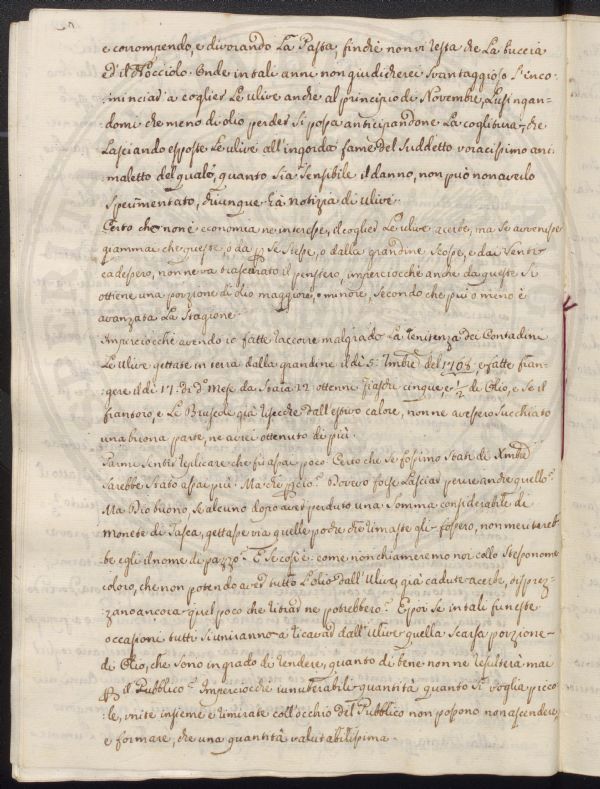 e corrompendo, e divorando La Pasta, finchè non vi resta che La buccia
ed il Nocciolo. Onde in tali anni non giudicherei svantaggioso L'inco=
minciar a coglier Le ulive anche al principio di Novembre, Lusingan=
domi che meno di olio perder si possa anticipandone La coglitura, che
Lasciando esposte Le ulive all'ingorda fame del suddetto voracissimo ani=
maletto del quale, quanto sia sensibile il danno, non può non averlo
sperimentato, chiunque hà notizia di ulive.
Certo che non è economia ne interesse, il coglier Le ulive acerbe, ma se avvenisse
giammai che queste, o da se stesse, o dalla grandine scosse, e dai Venti
cadessero, non ne va trascurato il pensiero, imperciocchè anche da queste si
ottiene una porzione di olio maggiore, o minore, secondo che più o meno è
avanzata La Stagione.
Imperciocchè avendo io fatte raccorre malgrado La renitenza dei Contadini
Le Ulive gettate in terra dalla grandine il dì 5. 7mbre del 1768, e fatte fran=
gere il dì 17. di do. Mese da Staia 22 ottenni fiasche cinque, e 1/2 di Olio, e se il
frantoio, e Le Bruscole già risecche dall'estivo calore, non ne avessero succhiato
una buona parte, ne avrei ottenuto di più.
Parmi sentir replicare che fù assai poco. Certo che se fossimo stati di Xmbre
sarebbe stato assai più. Ma che perciò? Dovevo forse Lasciar perire anche quello?
Ma Dio buono, se alcuno dopo aver perduto una somma considerabile di
monete di Tasca, gettasse via quelle poche che rimaste gli fossero, non meritereb=
be egli il nome di pazzo? E se così è: come non chiameremo noi collo stesso nome
coloro, che non potendo aver tutto L'olio dall'Ulive, già cadute acerbe, disprez=
zano ancora quel poco che ritrar ne potrebbero? E poi se in tali funeste
occasioni tutti si uniranno a ricavar dall'ulive quella scarsa porzione
di Olio, che sono in grado di rendere, quanto di bene non ne resulterà mai
per il Pubblico? Imperciocchè quantità quanto si voglia picco=
le, unite insieme e rimirate coll'occhio del Pubblico non possono non ascendere,
e formare, che una quantità valutabilissima.